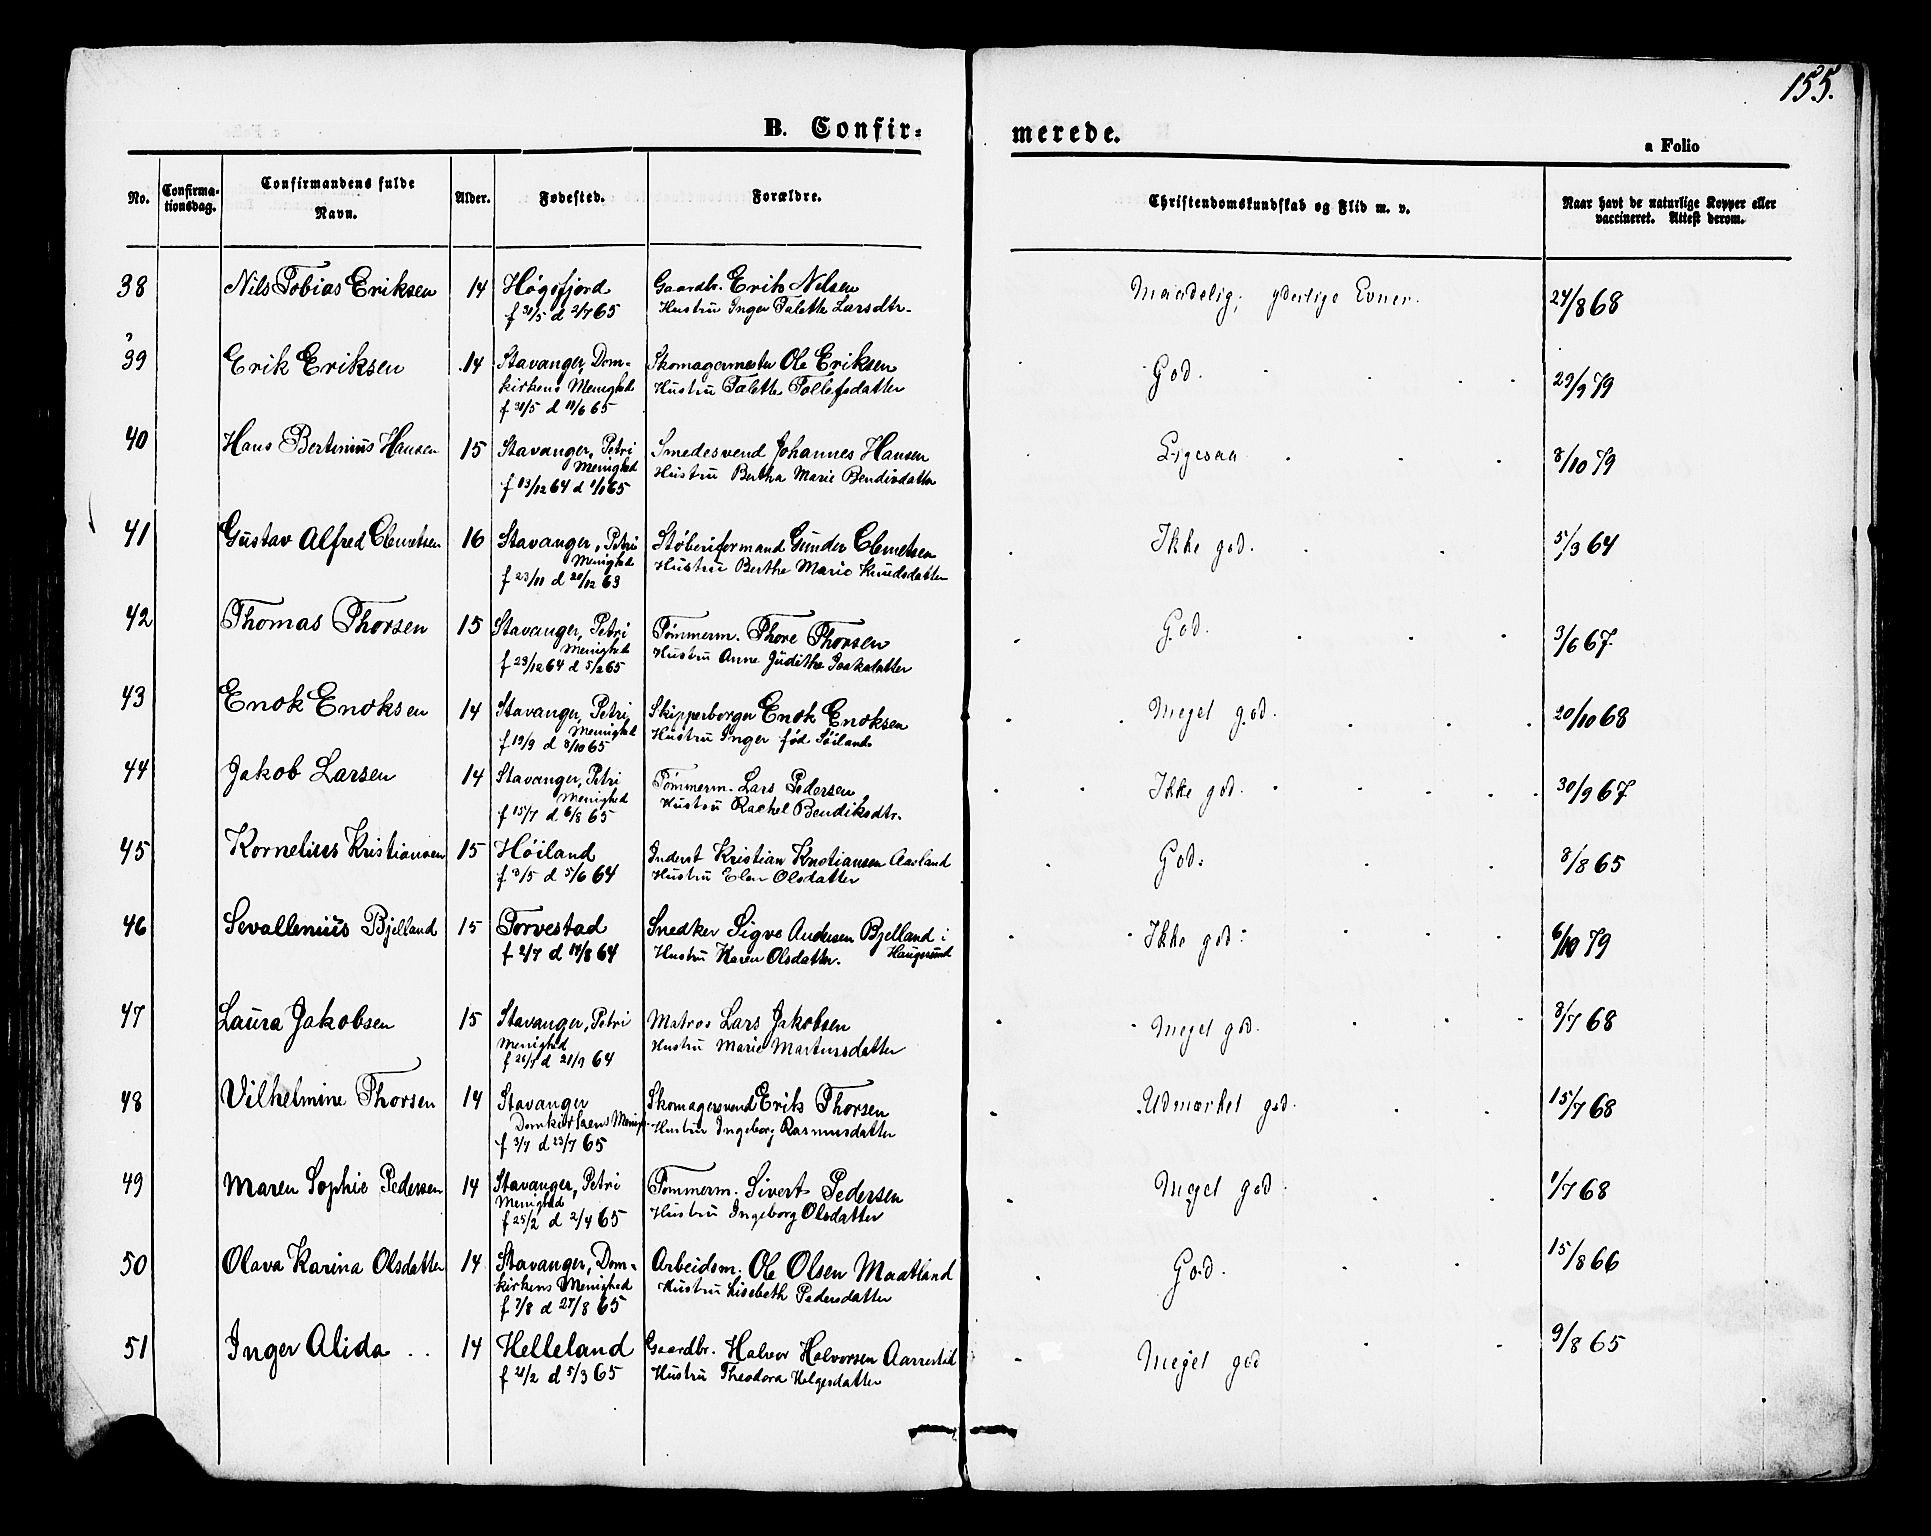 155.
B. Confir-
merede.
a Folio
No.
Confirma-
tionsdag.
Confirmandens fulde
Navn.
Alder.
Fødested.
Forældre.
Christendomskundskab og Flid m. v.
Naar havt de naturlige Kopper eller
vaccineret. Attest derom.
38 Nils Tobias Eriksen 14 Høgsfjord Gaardbr. Erik Nilsen Maadelig; yderlige Evner. 24/8 68
f 31/5 d 2/7 65 Hustru Inger Talette Larsdtr.
39 Erik Eriksen 14 Stavanger, Dom- Skomagermester Ole Eriksen God. 29/9 79
kirkens Menighed Hustru Talette Tollefsdatter
f 30/5 d 18/6 65
40 Hans Bertinius Hansen 15 Stavanger, Petri Smedesvend Johannes Hansen Ligesaa 8/10 79
Menighed Hustru Bertha Marie Bendixdatter
f 13/12 64 d 1/1 65
41 Gustav Alfred Clemetsen 16 Stavanger, Petri Støberiformand Gunder Clemetsen Ikke god. 5/3 64
Menighed Hustru Berthe Marie Knudsdatter
f 23/11 d 20/12 63
42 Thomas Thorsen 15 Stavanger, Petri Tømmerm. Thore Thorsen God. 3/6 67.
Menighed Hustru Anne Judithe Isaksdatter
f 29/12 64 d 5/2 65
43 Enok Enoksen 14 Stavanger, Petri Skipperborger Enok Enoksen Meget god. 20/10 68
Menighed Hustru Inger fød Søiland
f 19/9 d 8/10 65
44 Jakob Larsen 14 Stavanger, Petri Tømmerm. Lars Pedersen Ikke god. 30/9 67
Menighed Hustru Rachel Bendiksdtr.
f 15/7 d 6/8 65
45 Kornelius Kristiansen 15 Høiland Inderst Kristian Kristiansen Aarland God. 8/8 65
f 3/5 d 5/6 64 Hustru Elen Olsdatter
46 Sevallenius Bjelland 15 Torvestad Snedker Sigve Andersen Bjelland i Ikke god. 6/10 79
f 2/7 d 14/8 64 Hustru Karen Olsdatter. Haugesund
47 Laura Jakobsen 15 Stavanger, Petri Matros Lars Jakobsen Meget god. 8/7 68
Menighed Hustru Marie
d 64
48 Vilhelmine Thorsen 14 Stavanger Skomagersvend Erik Thorsen Udmærket god. 15/7 68
Domkirkens Menigh. Hustru Ingeborg Rasmusdatter
f 3/7 d 23/7 65
49 Maren Sophie Pedersen 14 Stavanger, Petri Tømmerm. Sivert Pedersen Meget god. 1/7 68
Menighed Hustru Ingeborg Olsdatter
f 25/2 d 2/4 65
50 Olava Karina Olsdatter 14 Stavanger, Dom- Arbeidsm. Ole Olsen Maatland God. 15/8 66
kirkens Menighed Hustru Lisebeth Pedersdatter
f 7/8 d 27/8 65
51 Inger Alida 14 Helleland Gaardbr. Halvor Halvorsen Aarrestad Meget god 9/8 65
f 21/2 d 5/3 65 Hustru Theodora Helgesdatter